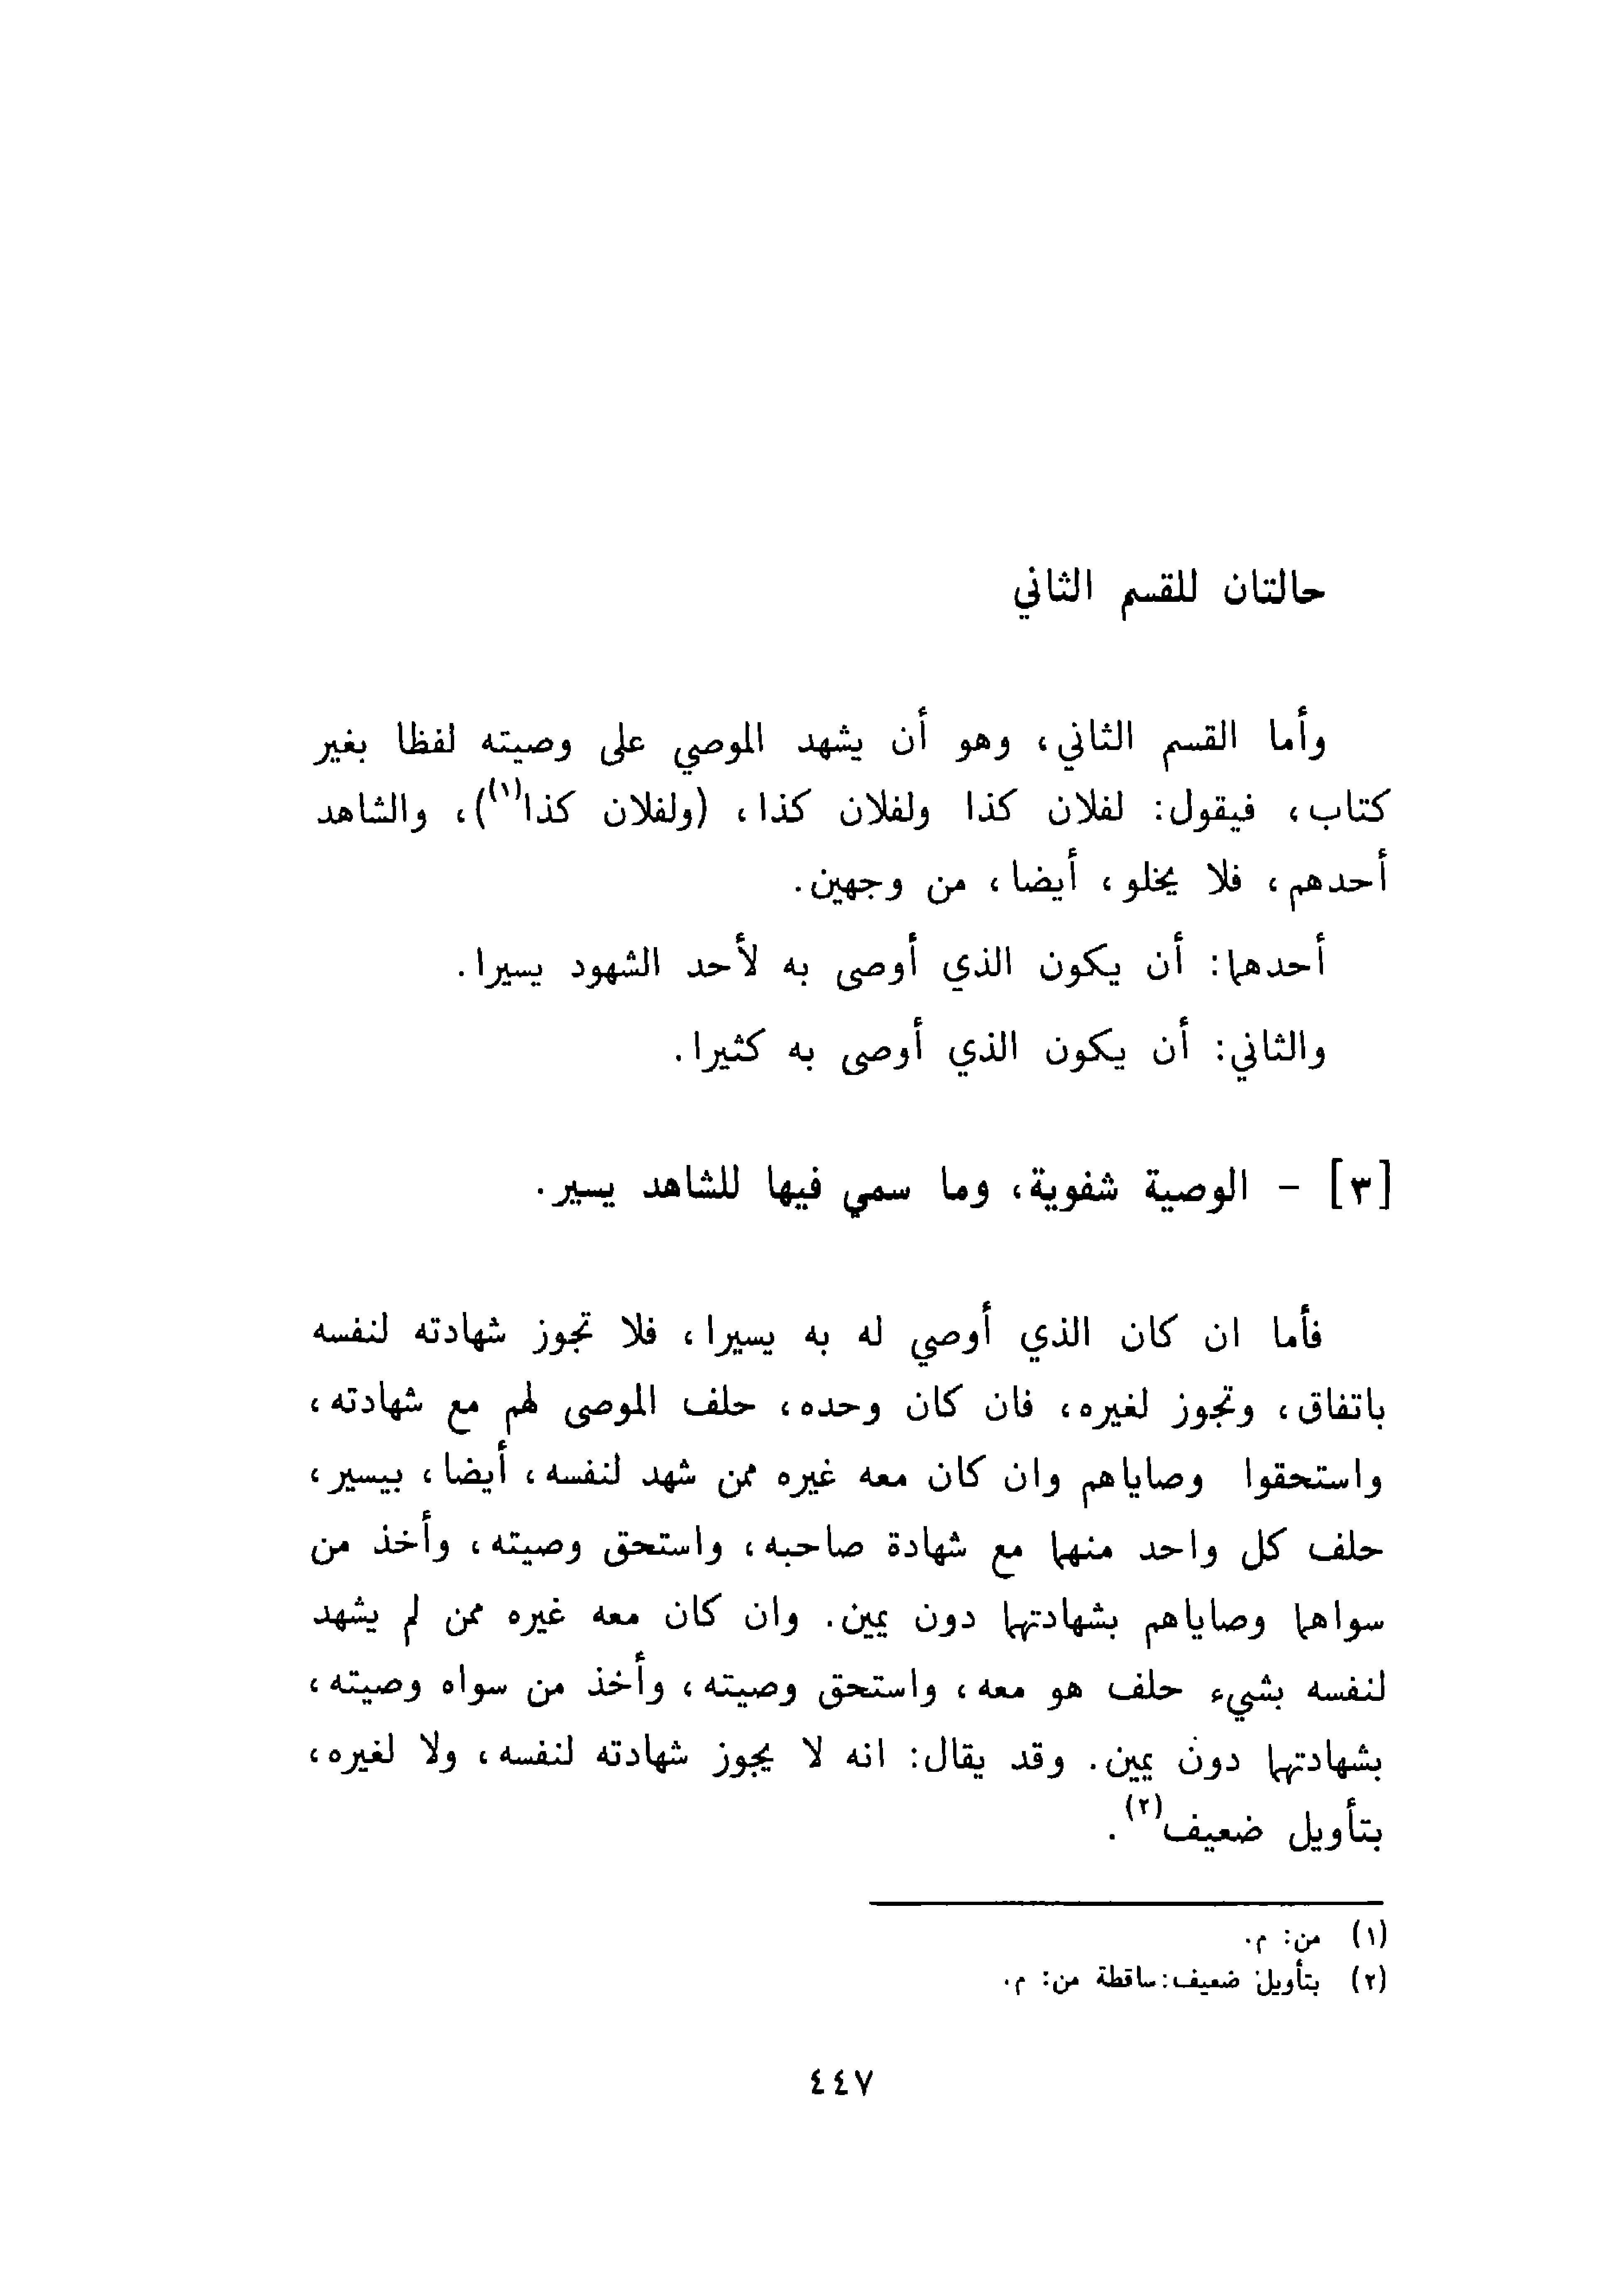 حالتان للقسم الثاني
وأما القسم الثاني، وهو أن يشهد الموصي على وصيته لفظا بغير
كتاب، فيقول: لفلان كذا ولفلان كذا، (ولفلان كذا(١))، والشاهد
أحدهم، فلا يخلو، أيضا، من وجهين.
أحدهما: أن يكون الذي أوصى به لأحد الشهود يسيرا.
والثاني: أن يكون الذي أوصى به كثيرا.
[٣] - الوصية شفوية، وما سمي فيها للشاهد يسير.
فأما ان كان الذي أوصي له به يسيرا، فلا تجوز شهادته لنفسه
باتفاق، وتجوز لغيره، فان كان وحده، حلف الموصى لهم مع شهادته،
واستحقوا وصاياهم وان كان معه غيره ممن شهد لنفسه، أيضا، بيسير،
حلف كل واحد منهما مع شهادة صاحبه، واستحق وصيته، وأخذ من
سواهما وصاياهم بشهادتهما دون يمين. وان كان معه غيره ممن لم يشهد
لنفسه بشيء حلف هو معه، واستحق وصيته، وأخذ من سواه وصيته،
بشهادتهما دون يمين. وقد يقال: انه لا يجوز شهادته لنفسه، ولا لغيره،
بتأويل ضعيف(٢).
(١) من: م.
(٢) بتأويل ضعيف: ساقطة من: م.
٤٤٧